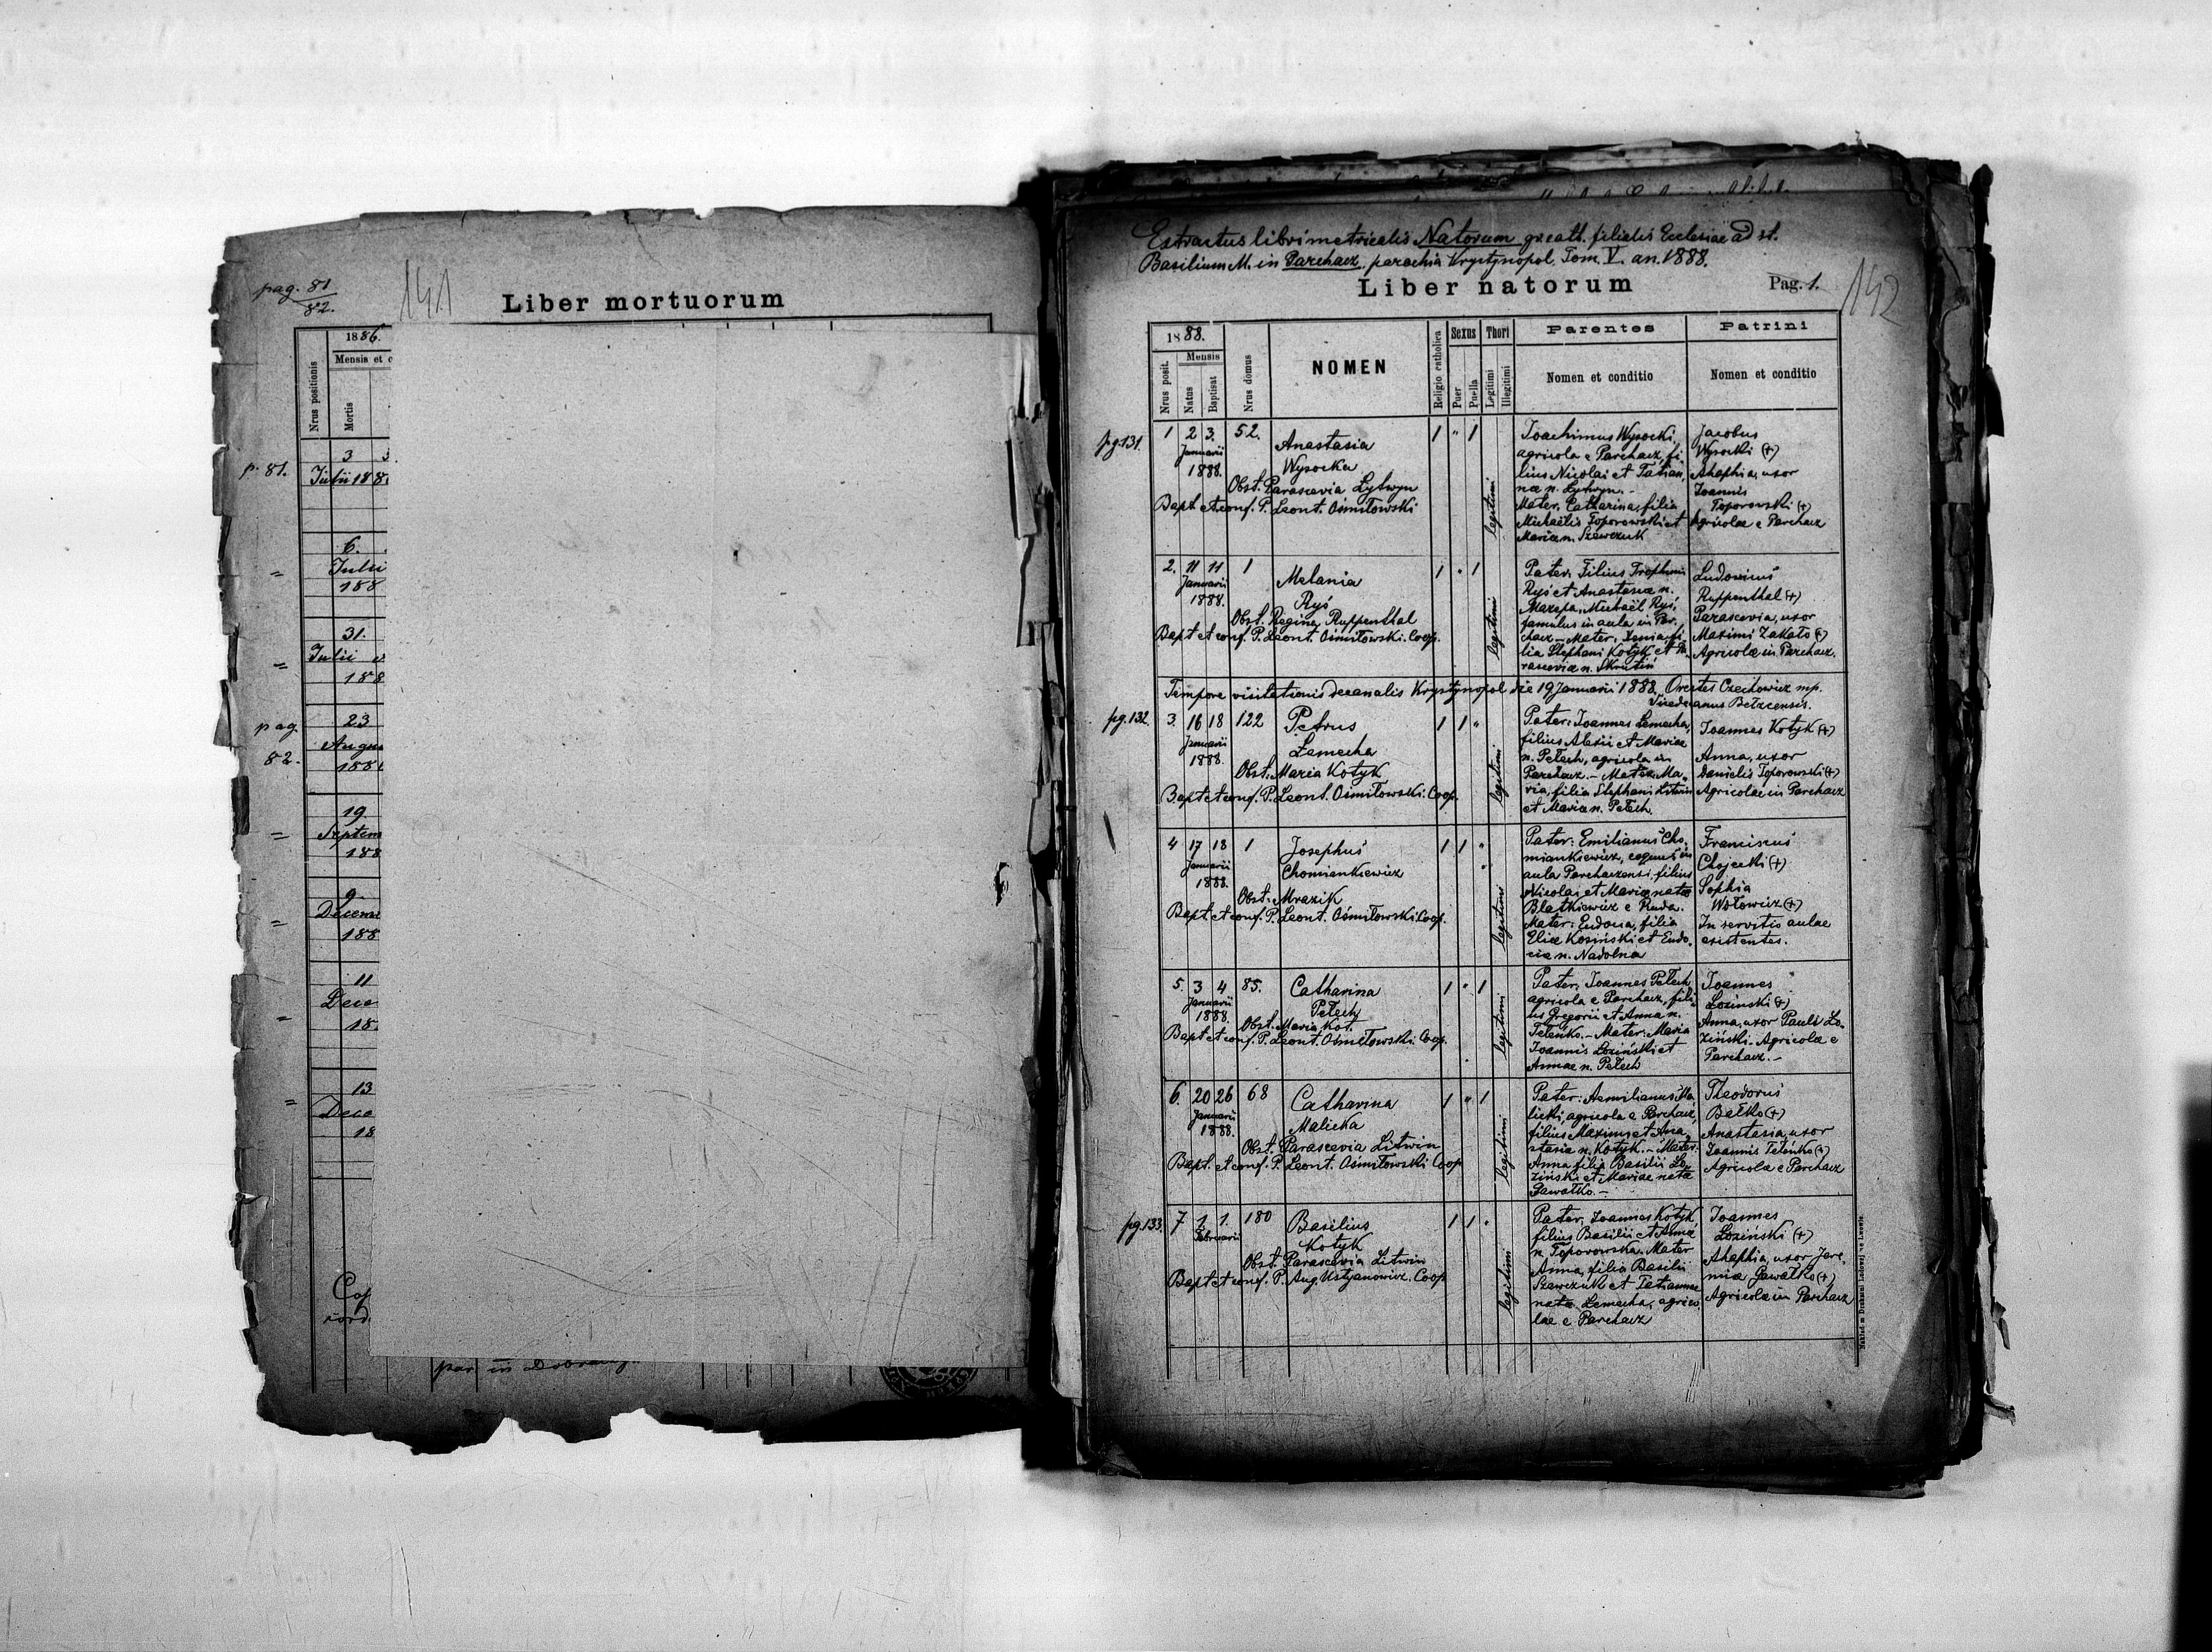 pag. 81
82.
141
Liber mortuorum
1886.
Nrus positionis
Mensis et
Mortis
p. 81.
3
Julii 188
6.
Julii
188
31.
Julii
188
pag.
82.
23
Augu
188
19
Septem
188
9
Decem
188
11
Dece
18
13
Dece
18
Cop
par in
Extractus libri metricalis Natorum gr. cath. filialis Ecclesiae ad st.
Basilium M. in Parchacz, parochia Krystynopol. Tom. V. an. 1888.
Liber natorum
Pag. 1.
142
1888.
Nrus posit.
Mensis
Natus
Baptisat
Nrus domus
NOMEN
Religio catholica
Sexus
Puer
Puella
Thori
Legitimi
Illegitimi
Parentes
Nomen et conditio
Patrini
Nomen et conditio
pg. 131.
1 2 3. 52.
Januarii
1888.
Anastasia
Wysocka
Obst. Parascevia Lytwyn
Bapt. et conf. P. Leont. Ośmiłowski
1 " 1
legitimi
Joachimus Wysocki,
agricola e Parchacz, fi-
lius Nicolai et Tatian-
nae n. Lytwyn. -
Mater, Catharina, filia
Michaëlis Toporowski et
Mariae n. Szewczuk
Jacobus
Wysocki (+)
Ahaphia, uxor
Joannis
Toporowski (+)
Agricolae e Parchacz
2. 11 11 1
Januarii
1888.
Melania
Ryś
Obst. Regina Ruppenthal
Bapt. et conf. P. Leont. Ośmiłowski. Coop.
1 " 1
legitimi
Pater, Filius Trophimi
Ryś et Anastasiae n.
Mazepa, Michaël Ryś,
famulus in aula in Par-
chacz – Mater: Xenia, fi-
lia Stephani Kotyk et Pa-
rasceviae n. Skrutiń
Ludovicus
Ruppenthal (+)
Parascevia, uxor
Maximi Zakało (+)
Agricolae in Parchacz.
Tempore visitationis decanalis Krystynopol die 19 Januarii 1888. Orestes Czechowicz mp.
Vicedecanus Bełzcensis.
pg. 132.
3. 16 18 122
Januarii
1888.
Petrus
Lemecha
Obst. Maria Kotyk
Bapt et conf. P. Leont. Ośmiłowski. Coop.
1 1 "
legitimi
Pater: Joannes Lemecha,
filius Alexii et Mariae
n. Pełech, agricola in
Parchacz. – Mater: Ma-
ria, filia Stephani Litwin
et Mariae n. Pełech
Joannes Kotyk (+)
Anna, uxor
Danielis Toporowski (+)
Agricolae in Parchacz
4 17 18 1
Januarii
1888.
Josephus
Chomiankiewicz
Obst. Mrazik
Bapt. et conf. P. Leont. Ośmiłowski. Coop.
1 1 "
legitimi
Pater: Emilianus Cho-
miankiewicz, coquus in
aula Parchaczensi, filius
Nicolai et Mariae natae
Blatkiewicz e Ruda.
Mater: Eudoxia, filia
Eliae Kosiński et Eudo-
ciae n. Nadolna
Franciscus
Chojecki (+)
Sophia
Wołowicz (+)
In servitio aulae
existentes.
5. 3 4 85.
Januarii
1888.
Catharina
Pełech
Obst. Maria Kot.
Bapt et conf. P. Leont. Ośmiłowski. Coop.
1 " 1
legitimi
Pater, Joannes Pełech
agricola e Parchacz, fili-
us Gregorii et Anna n.
Teleńko. – Mater: Maria
Joannis Łoziński et
Annae n. Pełech
Joannes
Łoziński (+)
Anna, uxor Pauli Ło-
ziński. Agricolae e
Parchacz. –
6. 20 26 68
Januarii
1888.
Catharina
Malicka
Obst. Parascevia Litwin
Bapt. et conf. P. Leont. Ośmiłowski Coop
1 " 1
legitimi
Pater: Aemilianus Ma-
licki, agricola e Parchacz,
filius Maximi et Ana-
stasia n. Kotyk. – Mater:
Anna filia Basilii Ło-
ziński et Mariae nata
Gawałko. –
Theodorus
Bełko (+)
Anastasia, uxor
Joannis Teleńko (+)
Agricolae e Parchacz
pg. 133.
7 1 1. 180
Februarii
Basilius
Kotyk
Obst. Parascevia Litwin
Bapt et conf. P. Aug. Ustyanowicz. Coop
1 1 "
legitimi
Pater, Joannes Kotyk,
filius Basilii et Anna
n. Toporowska. Mater
Anna, filia Basilii
Szewczuk et Tatiannae
nata Lemecha, agrico-
lae e Parchacz
Joannes
Łoziński (+)
Ahaphia, uxor Jere-
miae Gawałko (+)
Agricolae in Parchacz